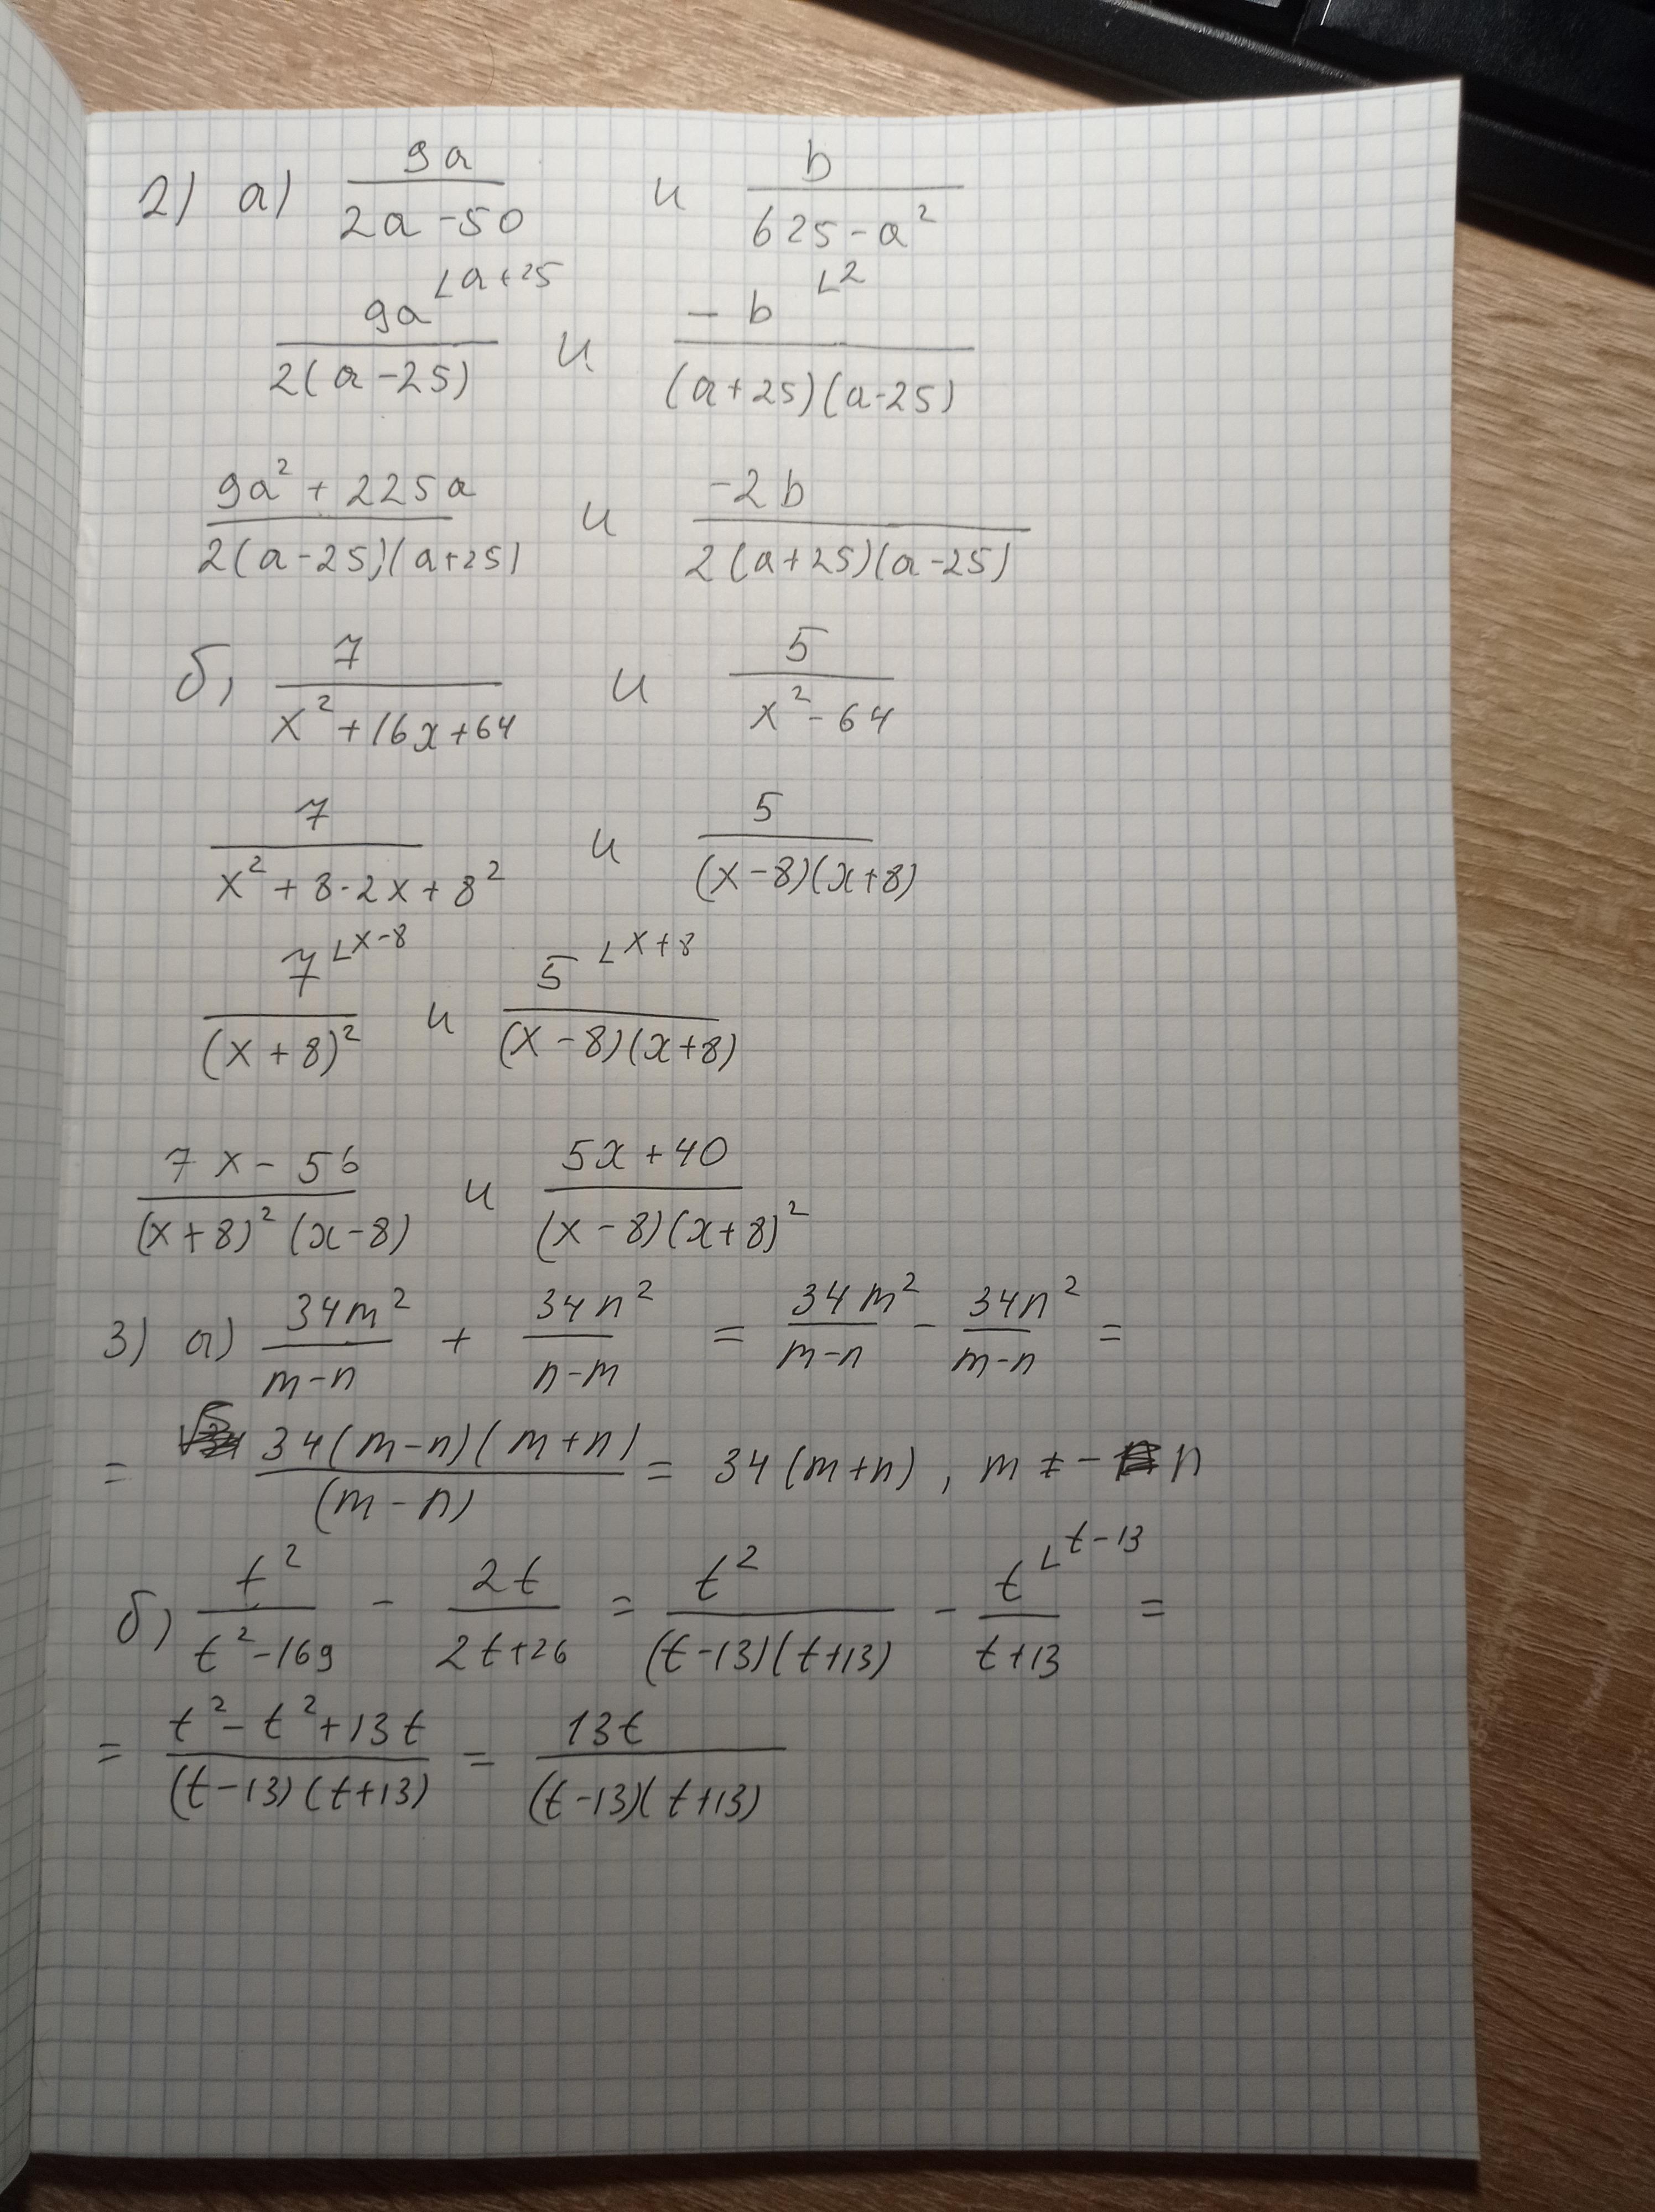 2) а) 9a/(2a-50) и b/(625-a²)
9a ∟a+25/(2(a-25)) и -b ∟2/((a+25)(a-25))
(9a²+225a)/(2(a-25)(a+25)) и -2b/(2(a+25)(a-25))
б) 7/(x²+16x+64) и 5/(x²-64)
7/(x²+8·2x+8²) и 5/((x-8)(x+8))
7 ∟x-8/(x+8)² и 5 ∟x+8/((x-8)(x+8))
(7x-56)/((x+8)²(x-8)) и (5x+40)/((x-8)(x+8)²)
3) а) 34m²/(m-n) + 34n²/(n-m) = 34m²/(m-n) - 34n²/(m-n) =
= 34(m-n)(m+n)/(m-n) = 34(m+n), m ≠ -n
б) t²/(t²-169) - 2t/(2t+26) = t²/((t-13)(t+13)) - t ∟t-13/(t+13) =
= (t²-t²+13t)/((t-13)(t+13)) = 13t/((t-13)(t+13))